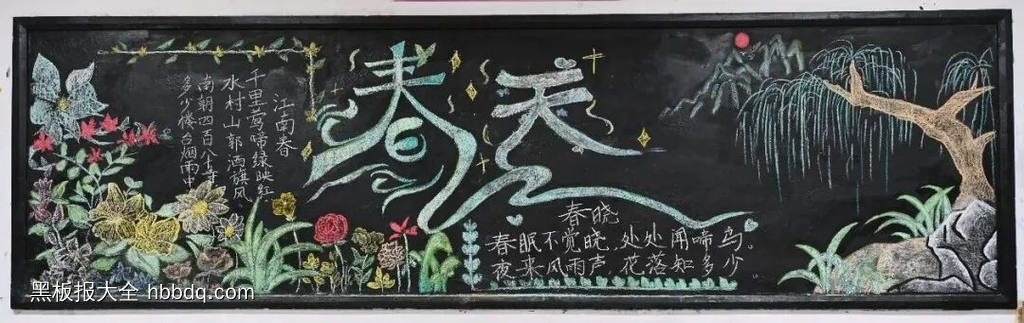 春天
江南春
千里莺啼绿映红
水村山郭酒旗风
南朝四百八十寺
多少楼台烟雨中
春晓
春眠不觉晓,处处闻啼鸟。
夜来风雨声,花落知多少。
黑板报大全 hbbdq.com